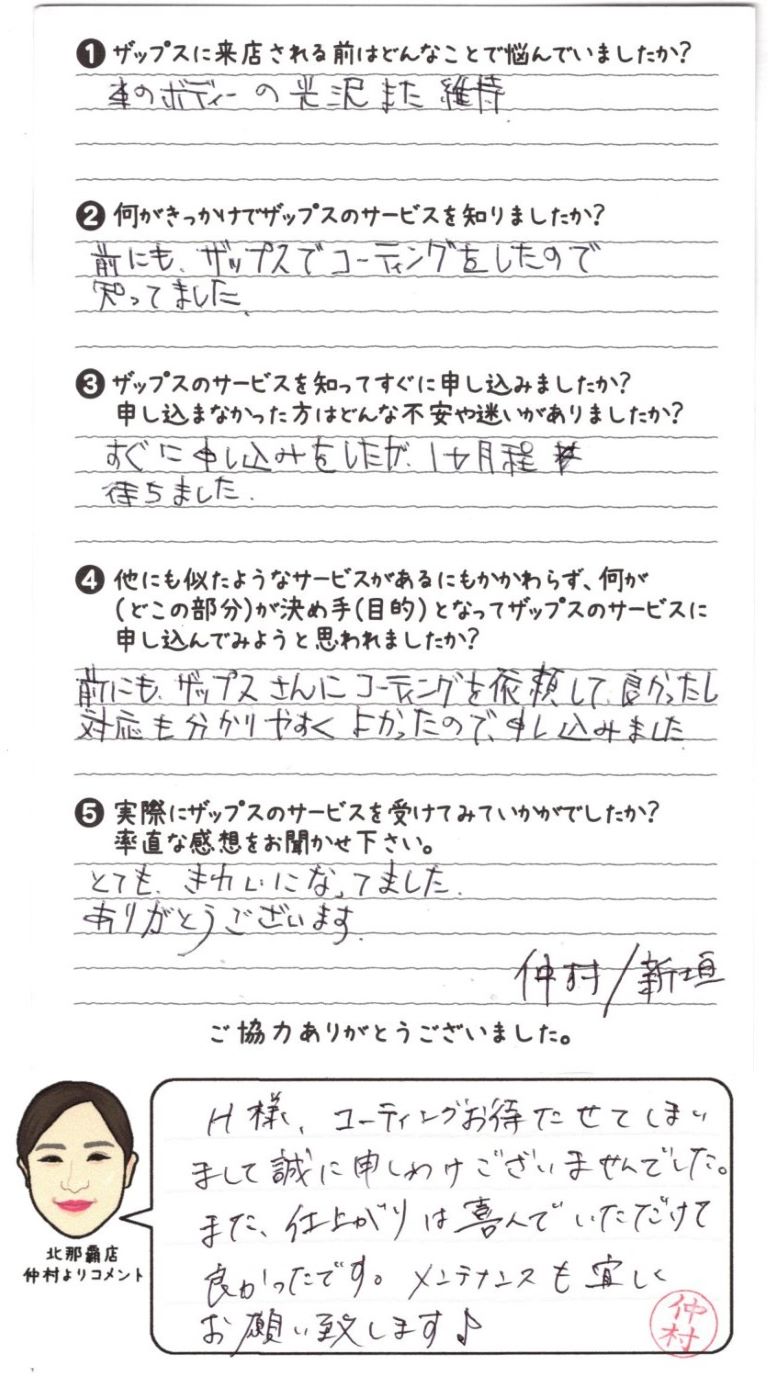 ❶ ザップスに来店される前はどんなことで悩んでいましたか?
車のボディーの光沢また維持
❷ 何がきっかけでザップスのサービスを知りましたか?
前にも、ザップスでコーティングをしたので
知ってました。
❸ ザップスのサービスを知ってすぐに申し込みましたか?
申し込まなかった方はどんな不安や迷いがありましたか?
すぐに申し込みをしたが、1ヶ月程
待ちました.
❹ 他にも似たようなサービスがあるにもかかわらず、何が
(どこの部分)が決め手(目的)となってザップスのサービスに
申し込んでみようと思われましたか?
前にも、ザップスさんにコーティングを依頼して、良かったし
対応も分かりやすくよかったので、申し込みました
❺ 実際にザップスのサービスを受けてみていかがでしたか?
率直な感想をお聞かせ下さい。
とても、きれいになってました.
ありがとうございます.
仲村/新垣
ご協力ありがとうございました。
H様、コーティングお待たせてしまい
まして誠に申しわけございませんでした。
また、仕上がりは喜んでいただけて
良かったです。メンテナンスも宜しく
お願い致します♪
北那覇店
仲村よりコメント
仲村